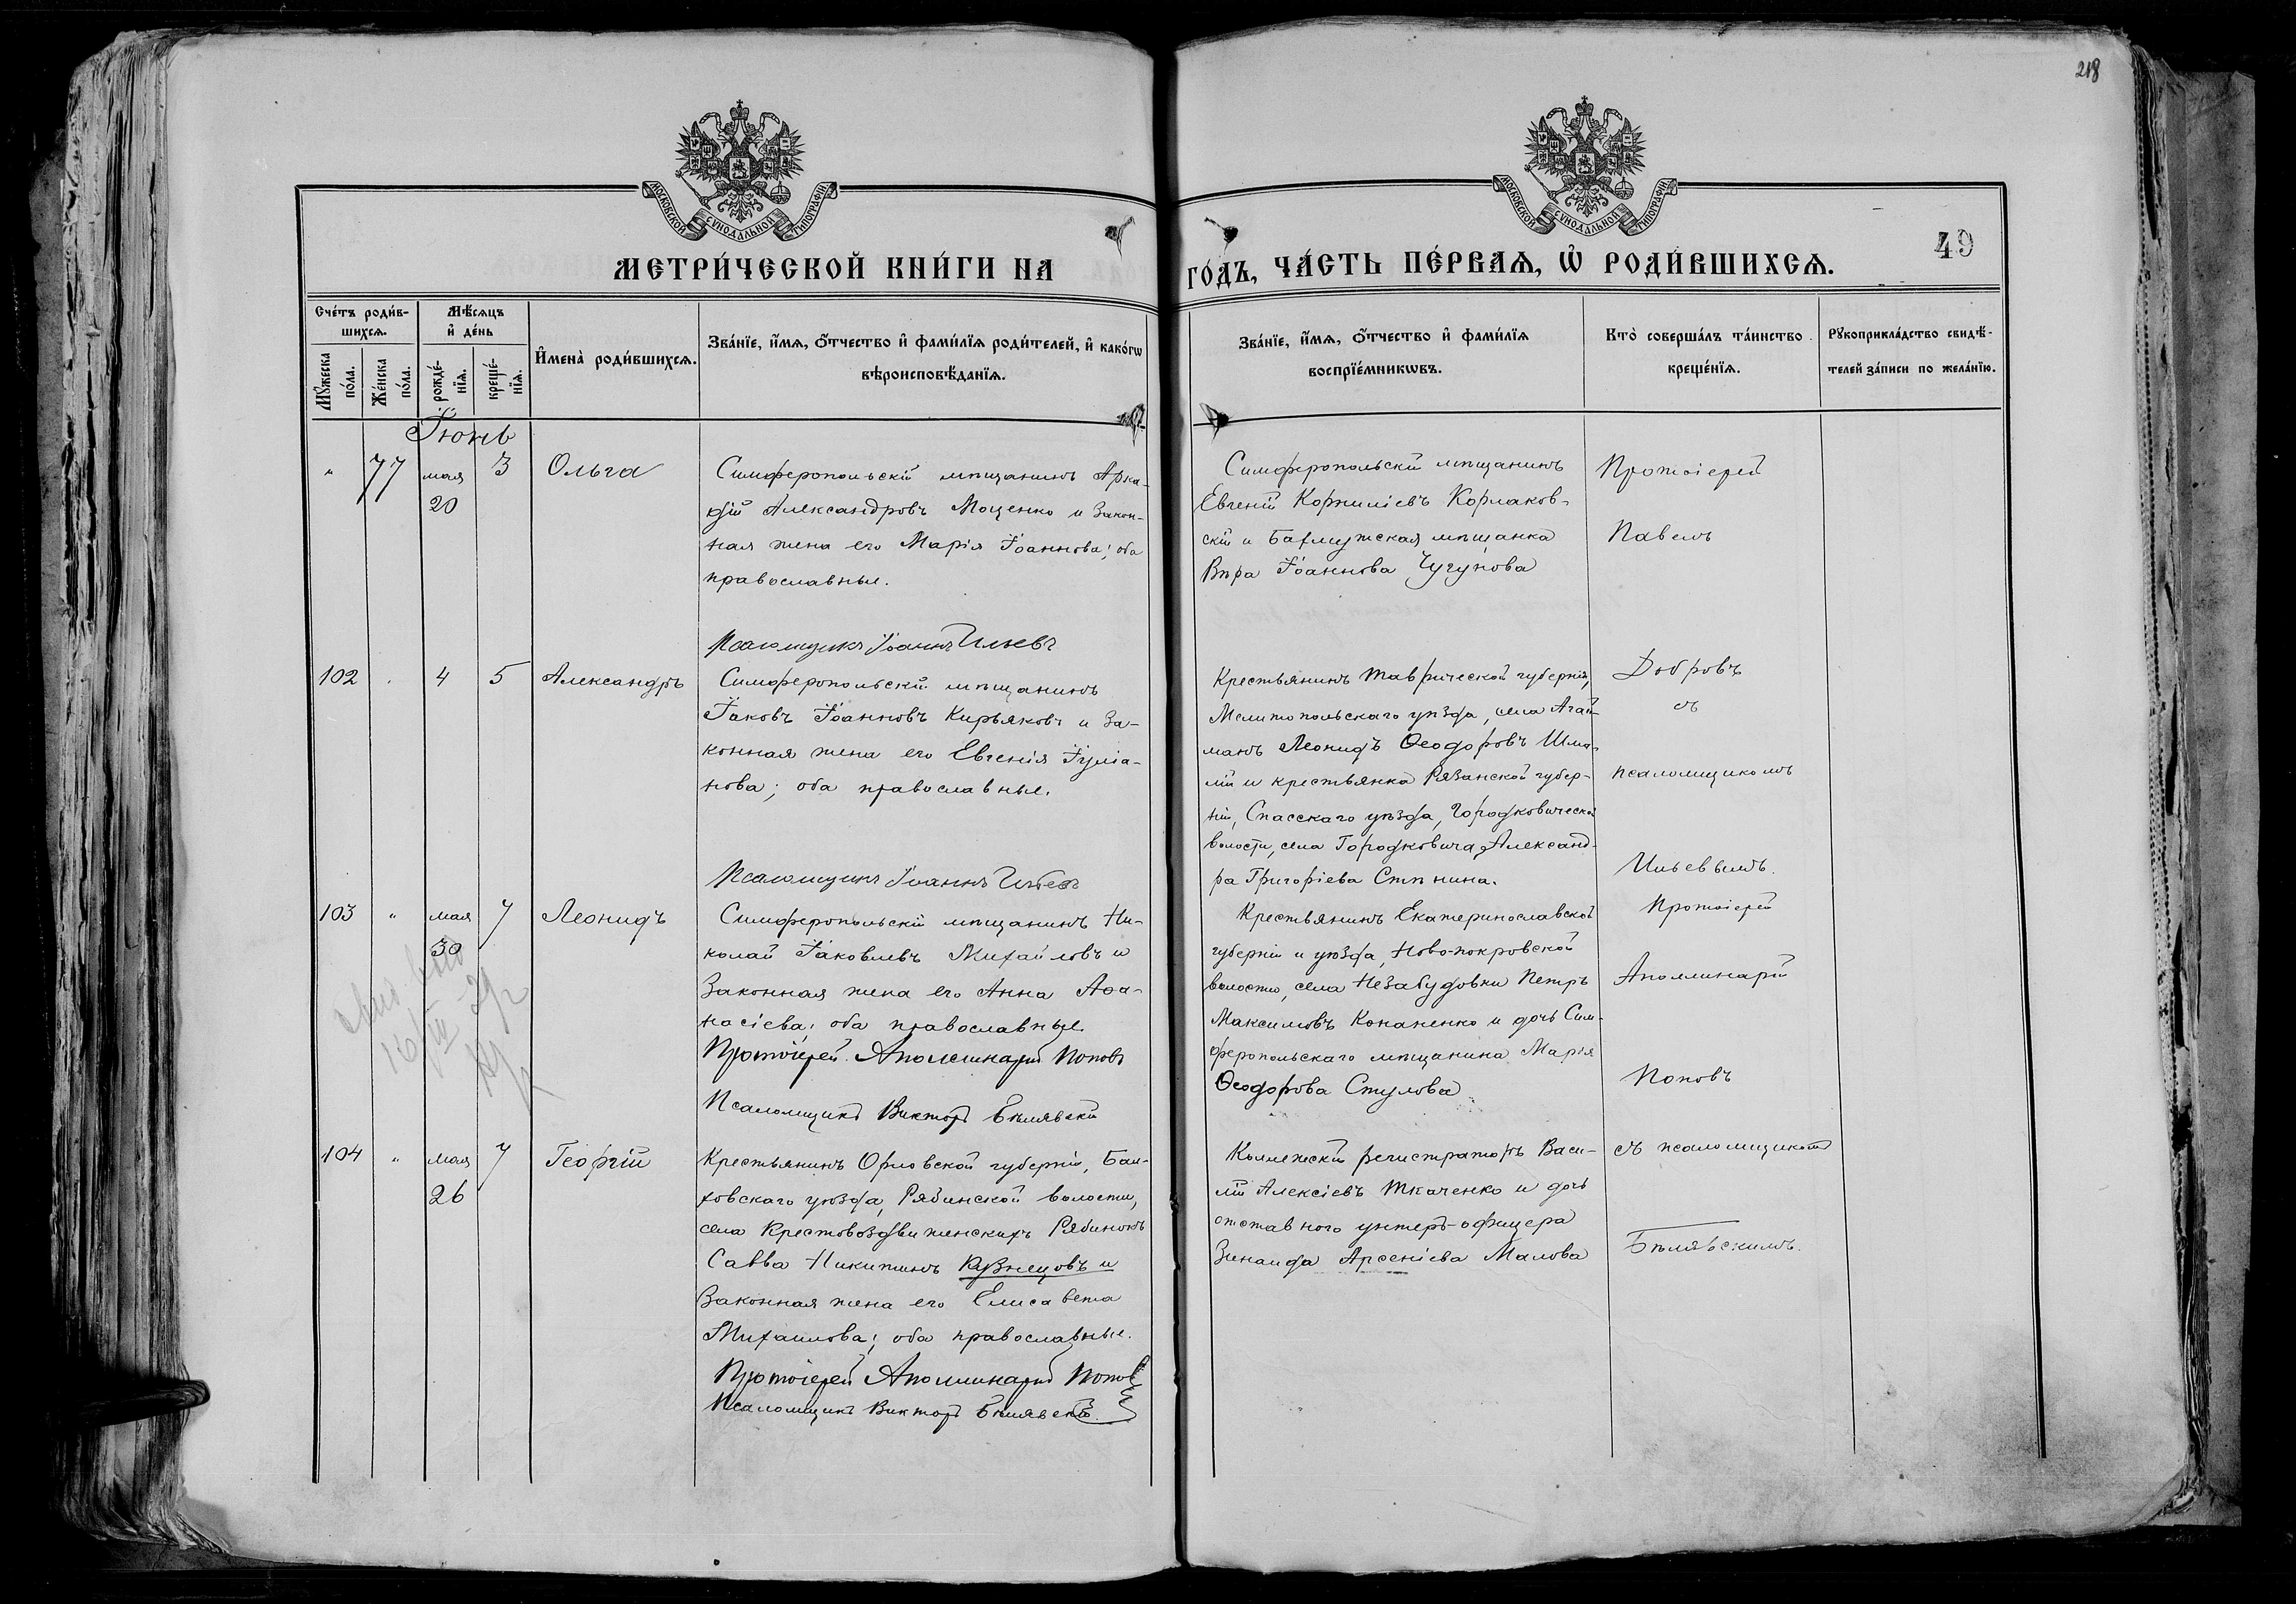 218
МОСКОВСКОЙ СѴНОДАЛЬНОЙ ТИПОГРАФІИ
МОСКОВСКОЙ СѴНОДАЛЬНОЙ ТИПОГРАФІИ
49
МЕТРИ́ЧЕСКОЙ КНИ́ГИ НА
ГО́ДЪ, ЧА́СТЬ ПЕ́РВАѦ, Ѡ҆ РОДИ́ВШИХСѦ.
Сче́тъ роди́в-
шихсѧ.
Мѣ́сѧцъ
и҆ де́нь
Мꙋ́жеска по́ла.
Же́нска по́ла.
рожде́-
нїѧ.
креще́-
нїѧ.
И҆мена̀ роди́вшихсѧ.
Зва́нїе, и҆́мѧ, ѻ҆́тчество и҆ фами́лїѧ роди́телей, и҆ како́гѡ
вѣроисповѣ́данїѧ.
Зва́нїе, и҆́мѧ, ѻ҆́тчество и҆ фами́лїѧ
воспрїе́мникѡвъ.
Кто̀ соверша́лъ та́инство
креще́нїѧ.
Рꙋкоприкла́дство свидѣ́-
телей за́писи по жела́нїю.
Іюнь
" 77 мая 3 Ольга
20
Симферопольскій мѣщанинъ Арка-
дій Александровъ Моценко и закон-
ная жена его Марія Іоаннова; оба
православные.
Псаломщикъ Іоаннъ Ильевъ
Симферопольскій мѣщанинъ
Евгеній Корниліевъ Корлаков-
скій и Бахмутская мѣщанка
Вѣра Іоаннова Чугунова
Протоіерей
Павелъ
102 . 4 5 Александръ
Симферопольскій мѣщанинъ
Іаковъ Іоанновъ Кирьяковъ и за-
конная жена его Евгенія Іуліа-
нова; оба православные.
Псаломщикъ Іоаннъ Ильевъ
Крестьянинъ Таврической губерніи,
Мелитопольскаго уѣзда, села Агай-
манъ Леонидъ Ѳеодоровъ Шма-
лій и крестьянка Рязанской губер-
ніи, Спасскаго уѣзда, Городковической
волости, села Городковича, Александ-
ра Григоріева Стѣнина.
Добровъ
съ
псаломщикомъ
Ильевымъ.
103 " мая 7 Леонидъ
30
Симферопольскій мѣщанинъ Ни-
колай Іаковлевъ Михайловъ и
законная жена его Анна Аѳа-
насіева; оба православные.
Протоіерей Аполлинарій Поповъ
Псаломщикъ Викторъ Бѣлявскій
Крестьянинъ Екатеринославской
губерніи и уѣзда, Ново-покровской
волости, села Незабудовки Петръ
Максимовъ Кононенко и дочь Сим-
феропольскаго мѣщанина Марія
Ѳеодорова Стулова.
Протоіерей
Аполлинарій
Поповъ
104 " мая 7 Георгій
26
Крестьянинъ Орловской губерніи, Бол-
ховскаго уѣзда, Рябинской волости,
села Крестовоздвиженскихъ Рябинокъ
Савва Никитинъ Кузнецовъ и
законная жена его Елисавета
Михаилова; оба православные.
Протоіерей Аполлинарій Поповъ
Псаломщикъ Викторъ Бѣлявскій.
Коллежскій регистраторъ Васи-
лій Алексіевъ Ткаченко и дочь
отставного унтеръ-офицера
Зинаида Арсеніева Малова
съ псаломщикомъ
Бѣлявскимъ.